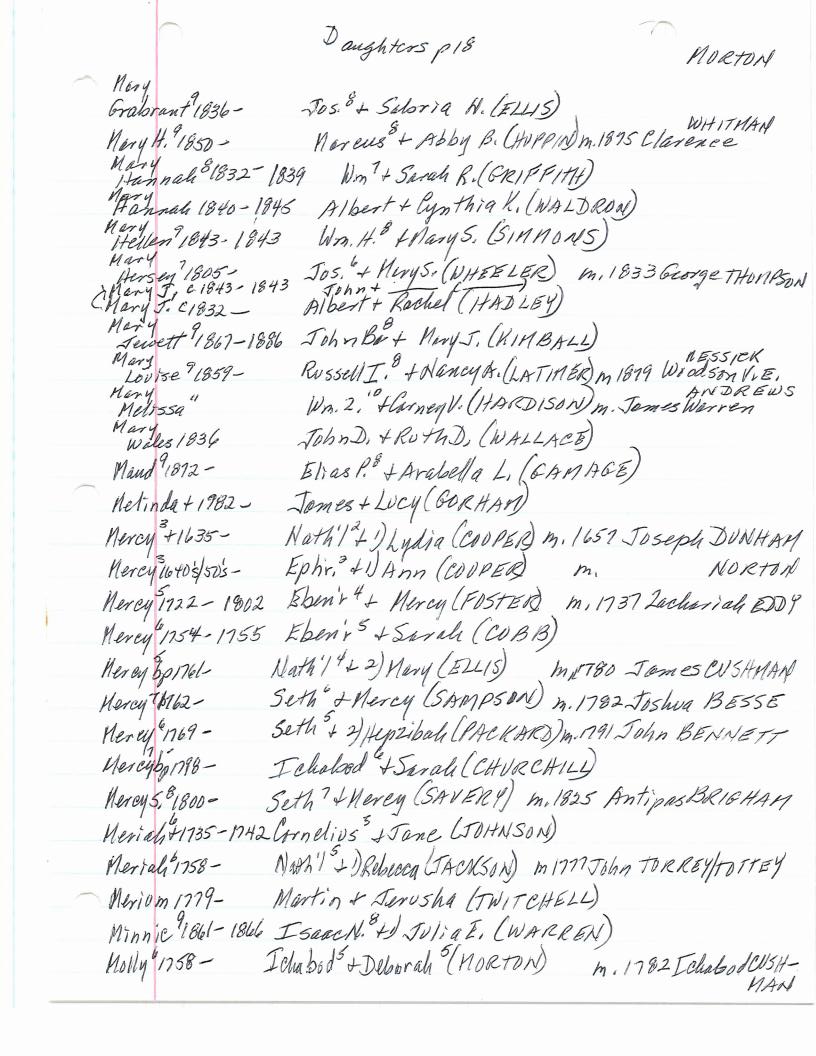 Daughters p18
MORTON
Mary
Grabrant⁹ 1836- Jos.⁸ + Saloria H. (ELLIS)
WHITMAN
Mary H.⁹ 1850- Marcus⁸ + Abby B. (HUPPIN) m. 1875 Clarence
Mary
Hannah⁸ 1832-1839 Wm⁷ + Sarah R. (GRIFFITH)
Mary
Hannah 1840-1845 Albert + Cynthia K. (WALDRON)
Mary
Hellen⁹ 1843-1843 Wm. H.⁸ + Mary S. (SIMMONS)
Mary
Hersey⁷ 1805- Jos.⁶ + Mary S. (WHEELER) m. 1833 George THOMPSON
Mary J. c1843-1843 John +
Mary J. c1832- Albert + Rachel (HADLEY)
Mary
Jewett⁹ 1867-1886 John ⁸ + Mary J. (KIMBALL)
Mary NESSICK
Louise⁹ 1859- Russell I.⁸ + Nancy A. (LATIMER) m 1879 Woodson V.E.
Mary ANDREWS
Melissa " Wm. Z.¹⁰ + Carney V. (HARDISON) m. James Warren
Mary
Wales 1836 John D. + Ruth D. (WALLACE)
Maud⁹ 1872- Elias P.⁸ + Arabella L. (GAMAGE)
Melinda + 1782- James + Lucy (GORHAM)
Mercy³ + 1635- Nath'l² + 1) Lydia (COOPER) m. 1657 Joseph DUNHAM
Mercy³ 1640's/50's- Ephr.² + 1) Ann (COOPER) m. NORTON
Mercy⁵ 1722-1802 Eben'r⁴ + Mercy (FOSTER) m. 1737 Zachariah EDDY
Mercy⁶ 1754-1755 Eben'r⁵ + Sarah (COBB)
Mercy⁵ bp 1761- Nath'l⁴ + 2) Mary (ELLIS) m 1780 James CUSHMAN
Mercy⁷ 1762- Seth⁶ + Mercy (SAMPSON) m. 1782 Joshua BESSE
Mercy⁶ 1769- Seth⁵ + 2) Hepzibah (PACKARD) m. 1791 John BENNETT
Mercy⁷ bp 1798- Ichabod⁶ + Sarah (CHURCHILL)
Mercy S.⁸ 1800- Seth⁷ + Mercy (SAVERY) m. 1825 Antipas BRIGHAM
Meriah⁶ + 1735-1742 Cornelius⁵ + Jane (JOHNSON)
Meriah⁶ 1758- Nath'l⁵ + 1) Rebecca (JACKSON) m 1777 John TORREY/TOTTEY
Meriom 1779- Martin + Jerusha (TWITCHELL)
Minnie⁹ 1861-1866 Isaac N.⁸ + 1) Julia E. (WARREN)
Molly⁶ 1758- Ichabod⁵ + Deborah⁵ (MORTON) m. 1782 Ichabod CUSH-
MAN